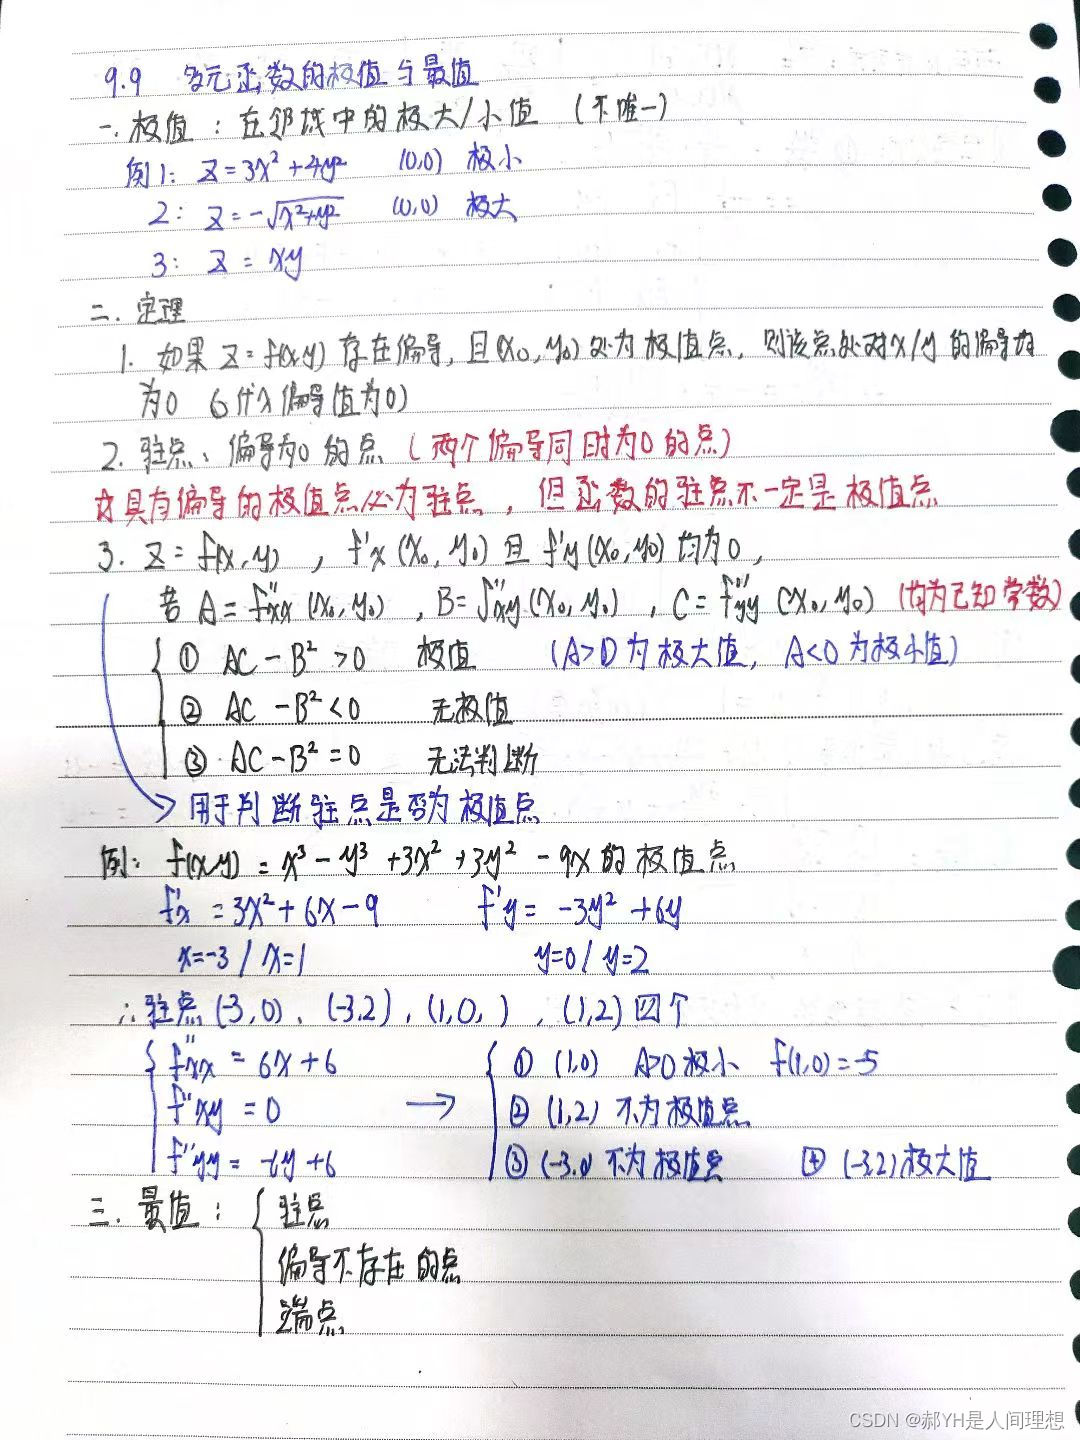 9.9 多元函数的极值与最值
一. 极值：在邻域中的极大/小值 (不唯一)
例1: Z=3x²+4y² (0,0) 极小
2: Z=-√x²+y² (0,0) 极大
3: Z = xy
二. 定理
1. 如果 Z=f(x,y) 存在偏导, 且(x₀,y₀)处为极值点, 则该点处对x/y的偏导均
为0 (代入偏导值为0)
2. 驻点: 偏导为0的点 (两个偏导同时为0的点)
☆具有偏导的极值点必为驻点, 但函数的驻点不一定是极值点
3. Z=f(x,y), f'x(x₀,y₀)且f'y(x₀,y₀)均为0,
若 A=f''xx(x₀,y₀), B=f''xy(x₀,y₀), C=f''yy(x₀,y₀) (均为已知常数)
① AC-B²>0 极值 (A>0为极大值, A<0为极小值)
② AC-B²<0 无极值
③ AC-B²=0 无法判断
→用于判断驻点是否为极值点
例: f(x,y)=x³-y³+3x²+3y²-9x的极值点
f'x=3x²+6x-9 f'y=-3y²+6y
x=-3/x=1 y=0/y=2
∴驻点(-3,0), (-3,2), (1,0,), (1,2)四个
f''xx=6x+6 ① (1,0) A>0极小 f(1,0)=-5
f''xy=0 → ② (1,2) 不为极值点
f''yy=-6y+6 ③ (-3,0)不为极值点 ④ (-3,2)极大值
三. 最值: 驻点
偏导不存在的点
端点
CSDN @郝YH是人间理想